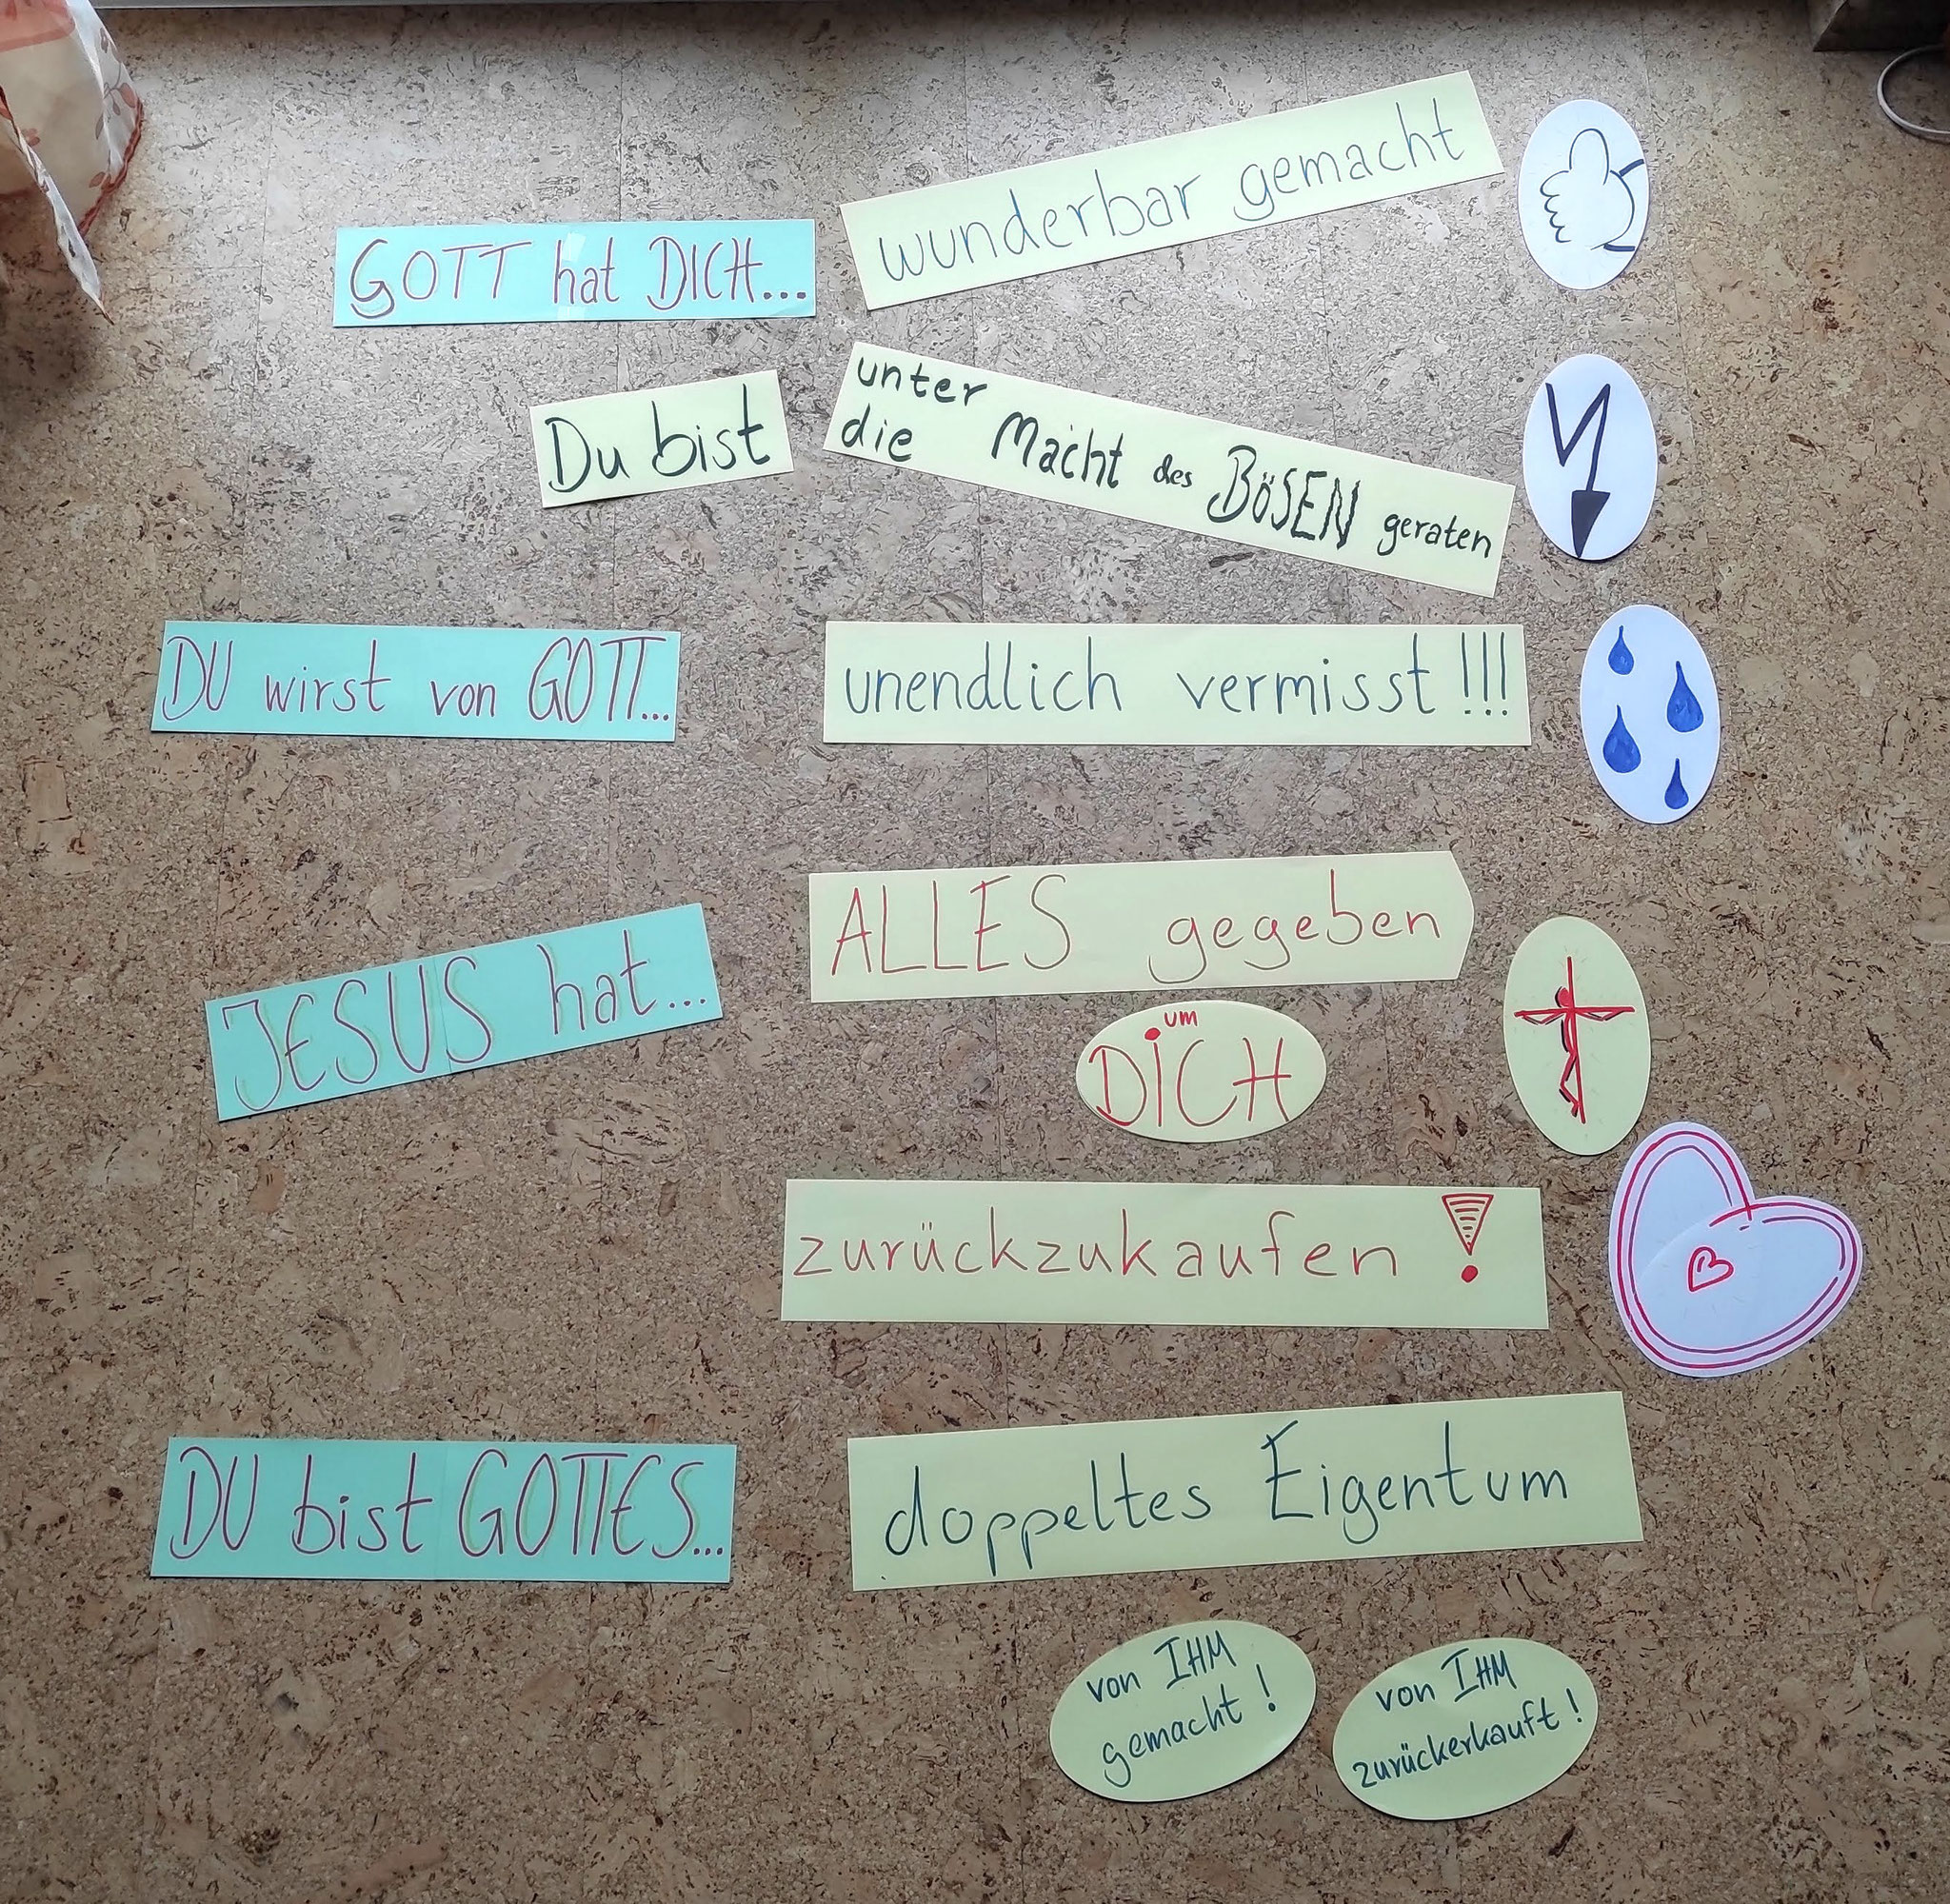 GOTT hat DICH...
wunderbar gemacht
Du bist
unter
die Macht des BÖSEN geraten
DU wirst von GOTT...
unendlich vermisst!!!
JESUS hat...
ALLES gegeben
um
DiCH
zurückzukaufen!
DU bist GOTTES...
doppeltes Eigentum
von IHM
gemacht!
von IHM
zurückerkauft!